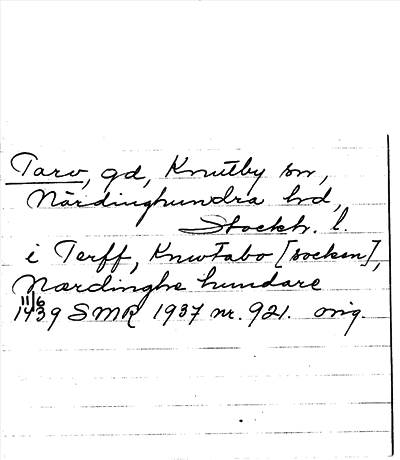 Tarv, gd, Knutby sn,
Närdinghundra hd,
Stockh. l.
i Terff, Knwtabo [socken],
Nærdinghe hundare
11/6
1439 SMR 1937 nr. 921. orig.